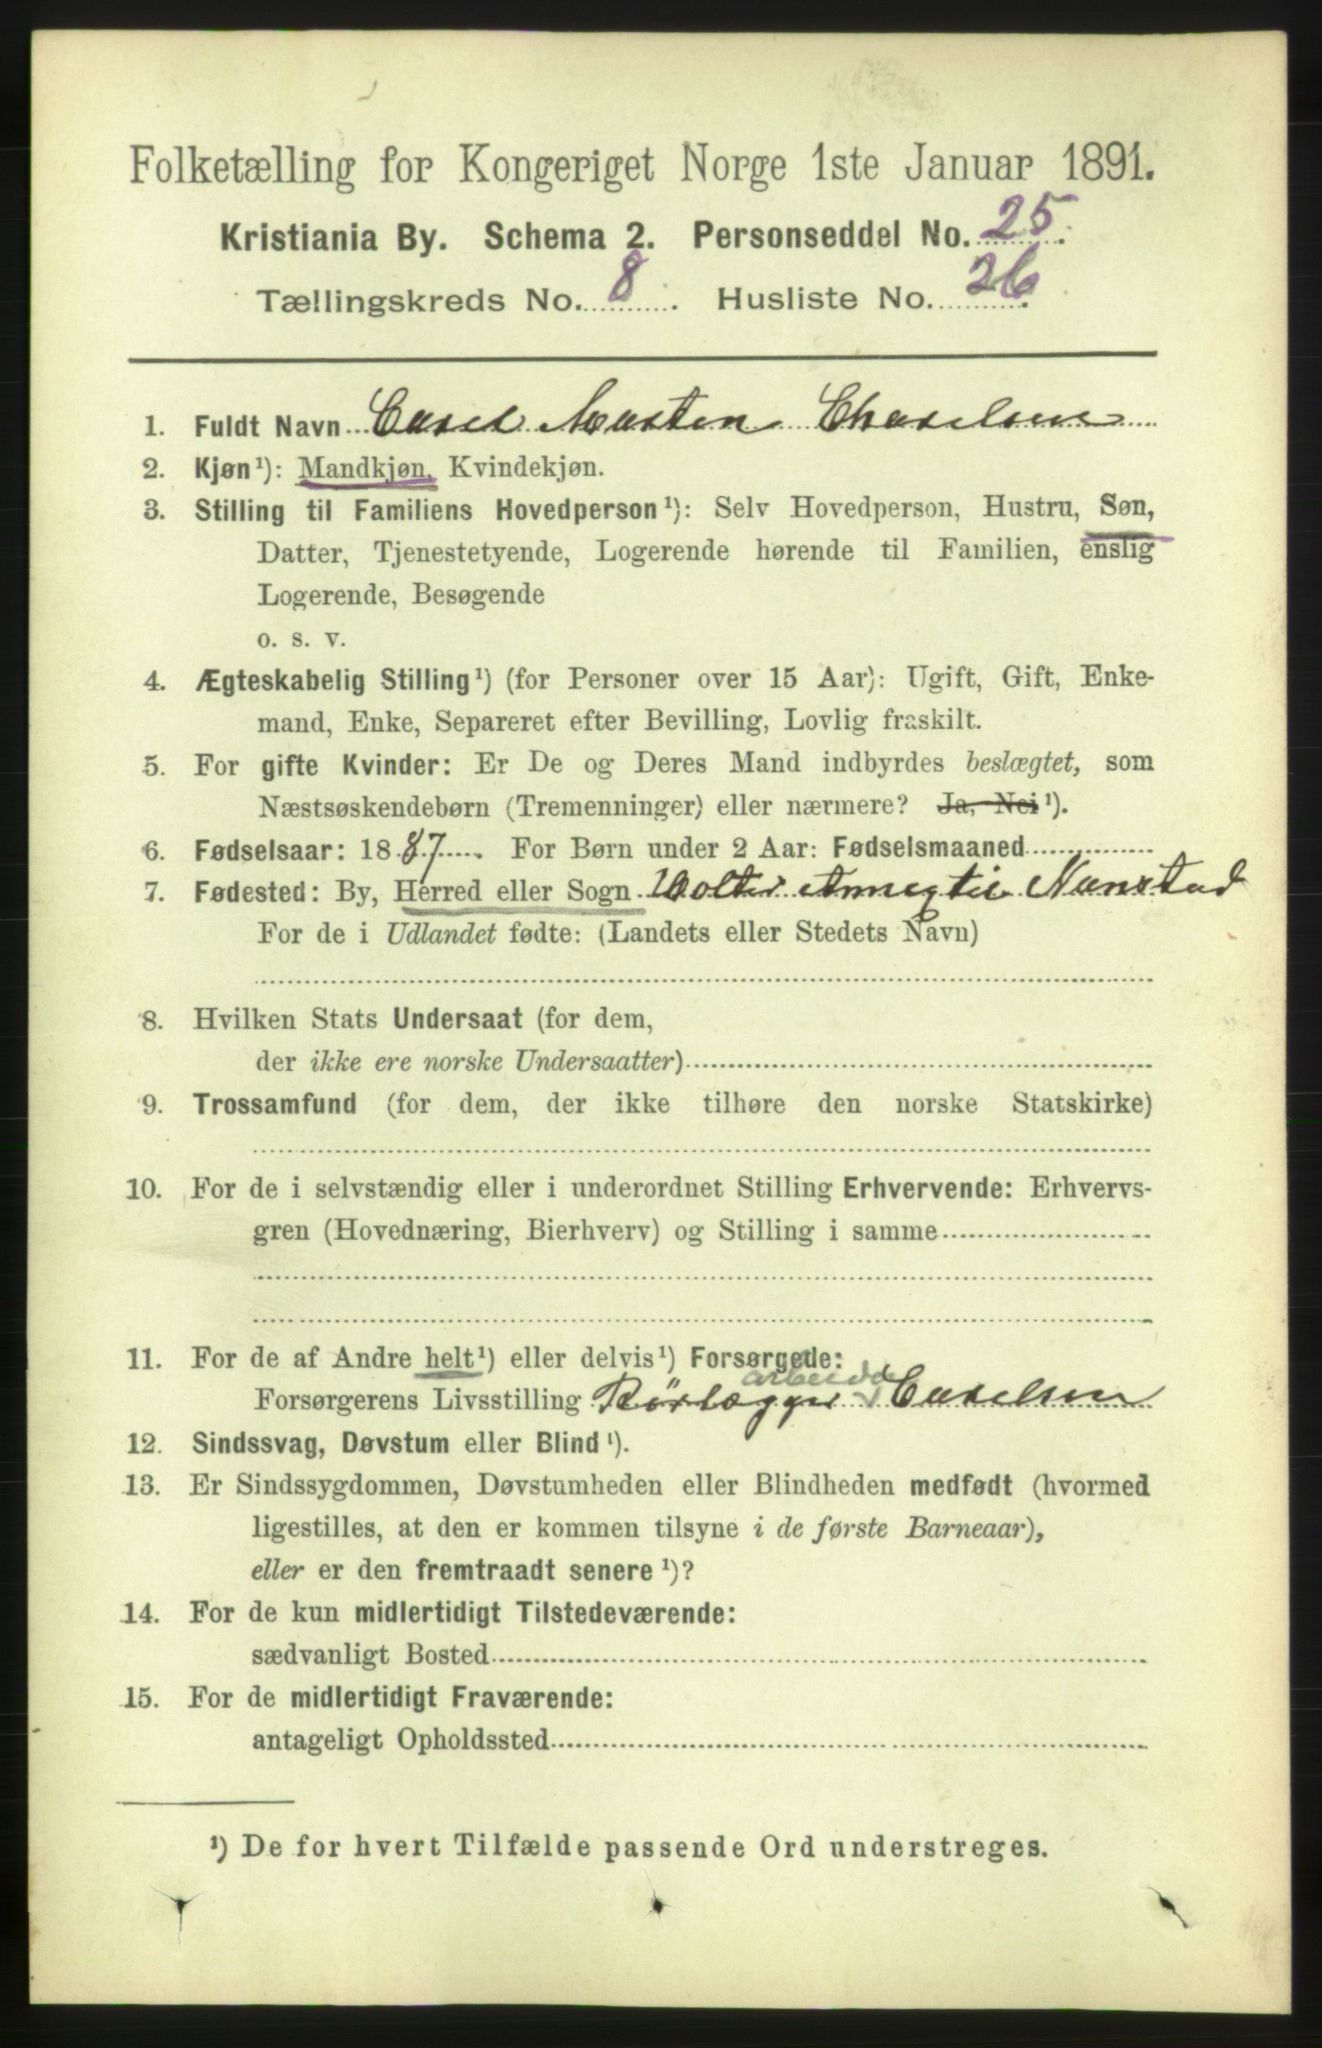 Folketælling for Kongeriget Norge 1ste Januar 1891.
Kristiania By. Schema 2. Personseddel No. 25.
Tællingskreds No. 8. Husliste No. 26.
1. Fuldt Navn Carel Marten Charelsen
2. Kjøn¹): Mandkjøn, Kvindekjøn.
3. Stilling til Familiens Hovedperson¹): Selv Hovedperson, Hustru, Søn,
Datter, Tjenestetyende, Logerende hørende til Familien, enslig
Logerende, Besøgende
o. s. v.
4. Ægteskabelig Stilling¹) (for Personer over 15 Aar): Ugift, Gift, Enke-
mand, Enke, Separeret efter Bevilling, Lovlig fraskilt.
5. For gifte Kvinder: Er De og Deres Mand indbyrdes beslægtet, som
Næstsøskendebørn (Tremenninger) eller nærmere? Ja, Nei¹).
6. Fødselsaar: 1887. For Børn under 2 Aar: Fødselsmaaned
7. Fødested: By, Herred eller Sogn
For de i Udlandet fødte: (Landets eller Stedets Navn)
8. Hvilken Stats Undersaat (for dem,
der ikke ere norske Undersaatter)
9. Trossamfund (for dem, der ikke tilhøre den norske Statskirke)
10. For de i selvstændig eller i underordnet Stilling Erhvervende: Erhvervs-
gren (Hovednæring, Bierhverv) og Stilling i samme
11. For de af Andre helt¹) eller delvis¹) Forsørgede:
arbeider
Forsørgerens Livsstilling Rörlægger Carelsen
12. Sindssvag, Døvstum eller Blind¹).
13. Er Sindssygdommen, Døvstumheden eller Blindheden medfødt (hvormed
ligestilles, at den er kommen tilsyne i de første Barneaar),
eller er den fremtraadt senere¹)?
14. For de kun midlertidigt Tilstedeværende:
sædvanligt Bosted
15. For de midlertidigt Fraværende:
antageligt Opholdssted
¹) De for hvert Tilfælde passende Ord understreges.